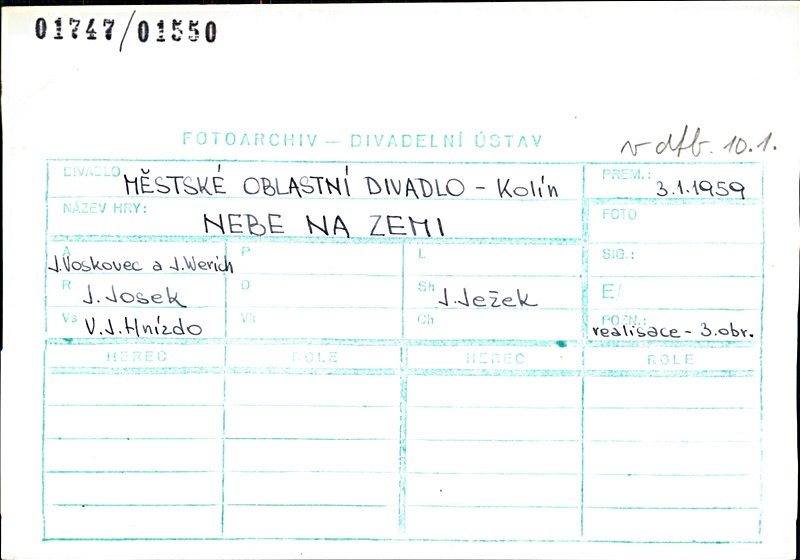 01747/01550
FOTOARCHIV — DIVADELNÍ ÚSTAV
v dfb. 10.1.
DIVADLO: MĚSTSKÉ OBLASTNÍ DIVADLO - Kolín
PREM.: 3.1.1959
NÁZEV HRY: NEBE NA ZEMI
FOTO
A J.Voskovec a J.Werich
P
L
SIG.:
R J. Josek
D
Sh J. Ježek
E/
Vs V.J. Hnízdo
Vk
Ch
POZN.: realisace - 3.obr.
HEREC ROLE HEREC ROLE